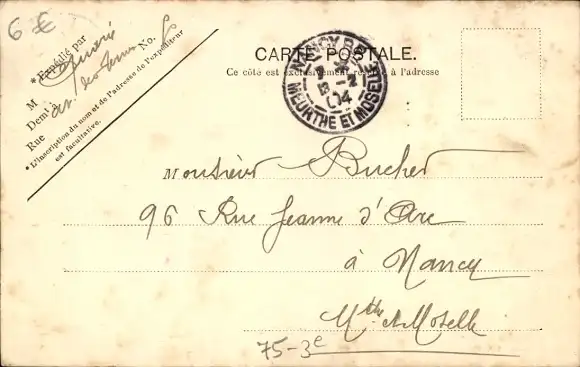 6 €
* Expédié par
M
Demt à No. 8
Rue
* L'inscription du nom et de l'adresse de l'expéditeur
est facultative.
CARTE POSTALE.
Ce côté est exclusivement réservé à l'adresse
NANCY
04
MEURTHE ET MOSELLE
Monsieur Bucher
96 Rue Jeanne d'Arc
à Nancy
Mthe & Moselle
75-3e